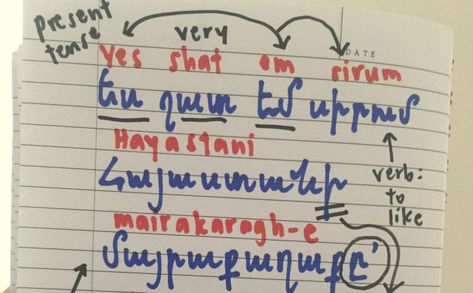 present
tense
very
DATE
Yes shat em sirum
Ես շատ եմ սիրում
Hayastani
Հայաստանի
verb:
to
like
mairakaragh-e
մայրաքաղաքը